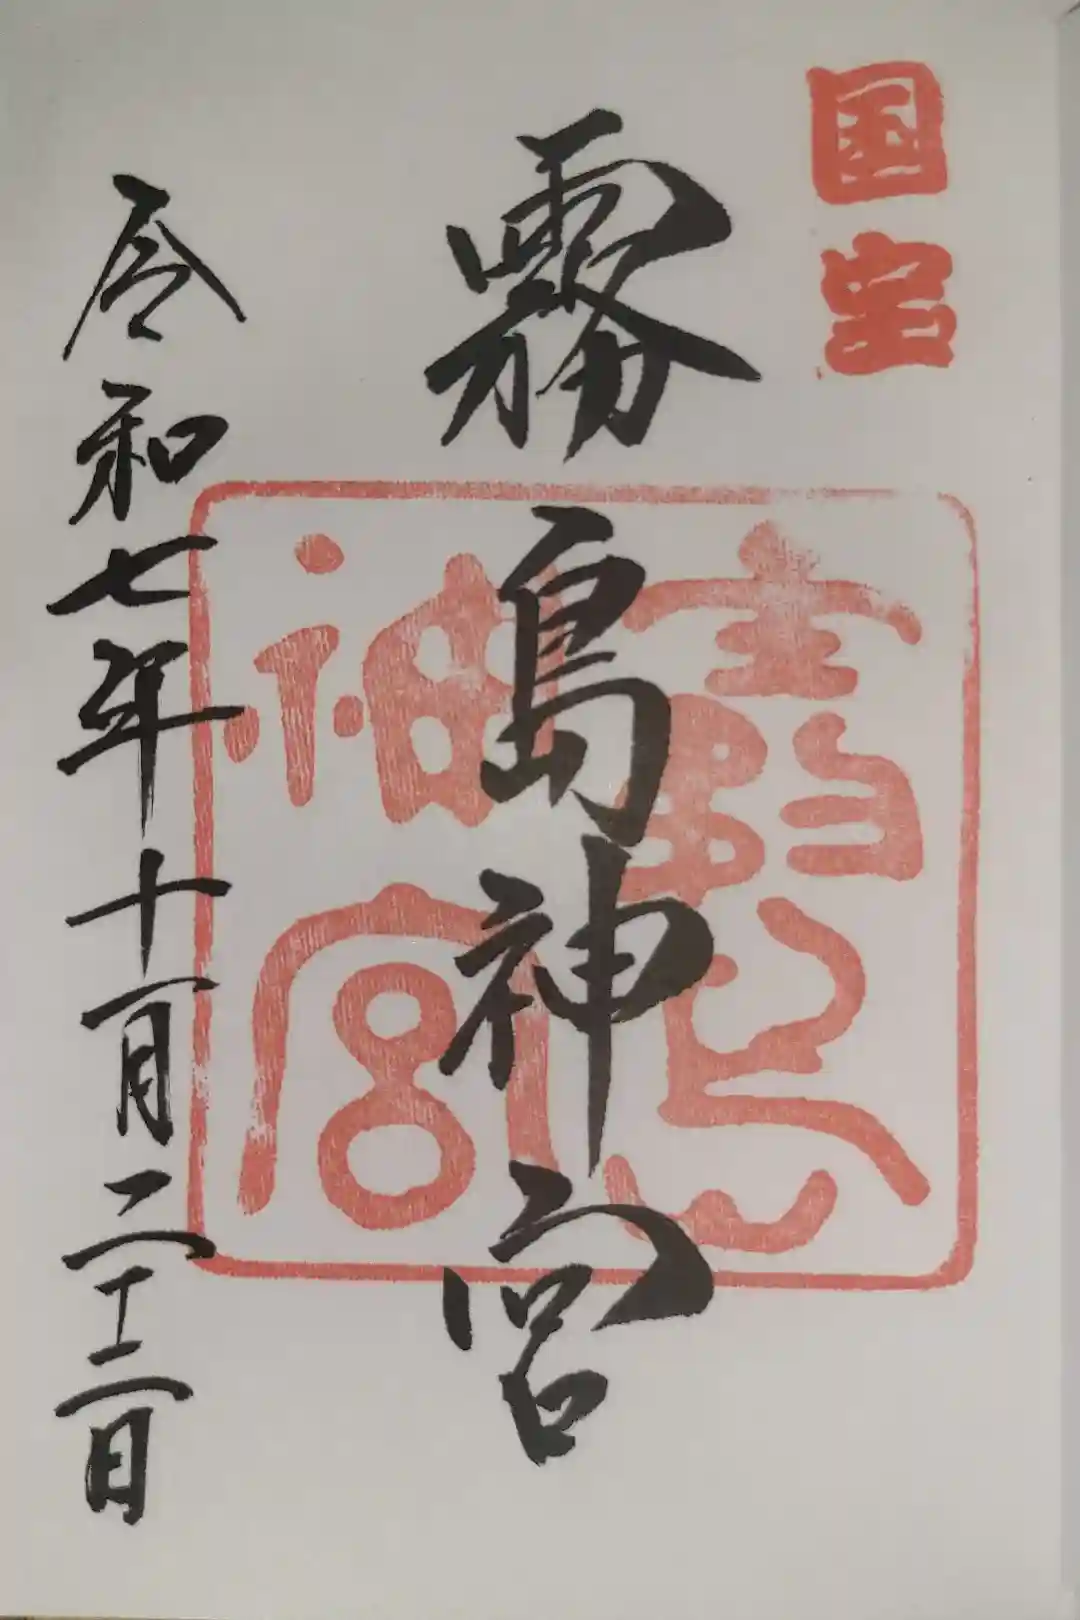 国宝
霧島神宮
霧島神宮
令和七年十一月二十二日